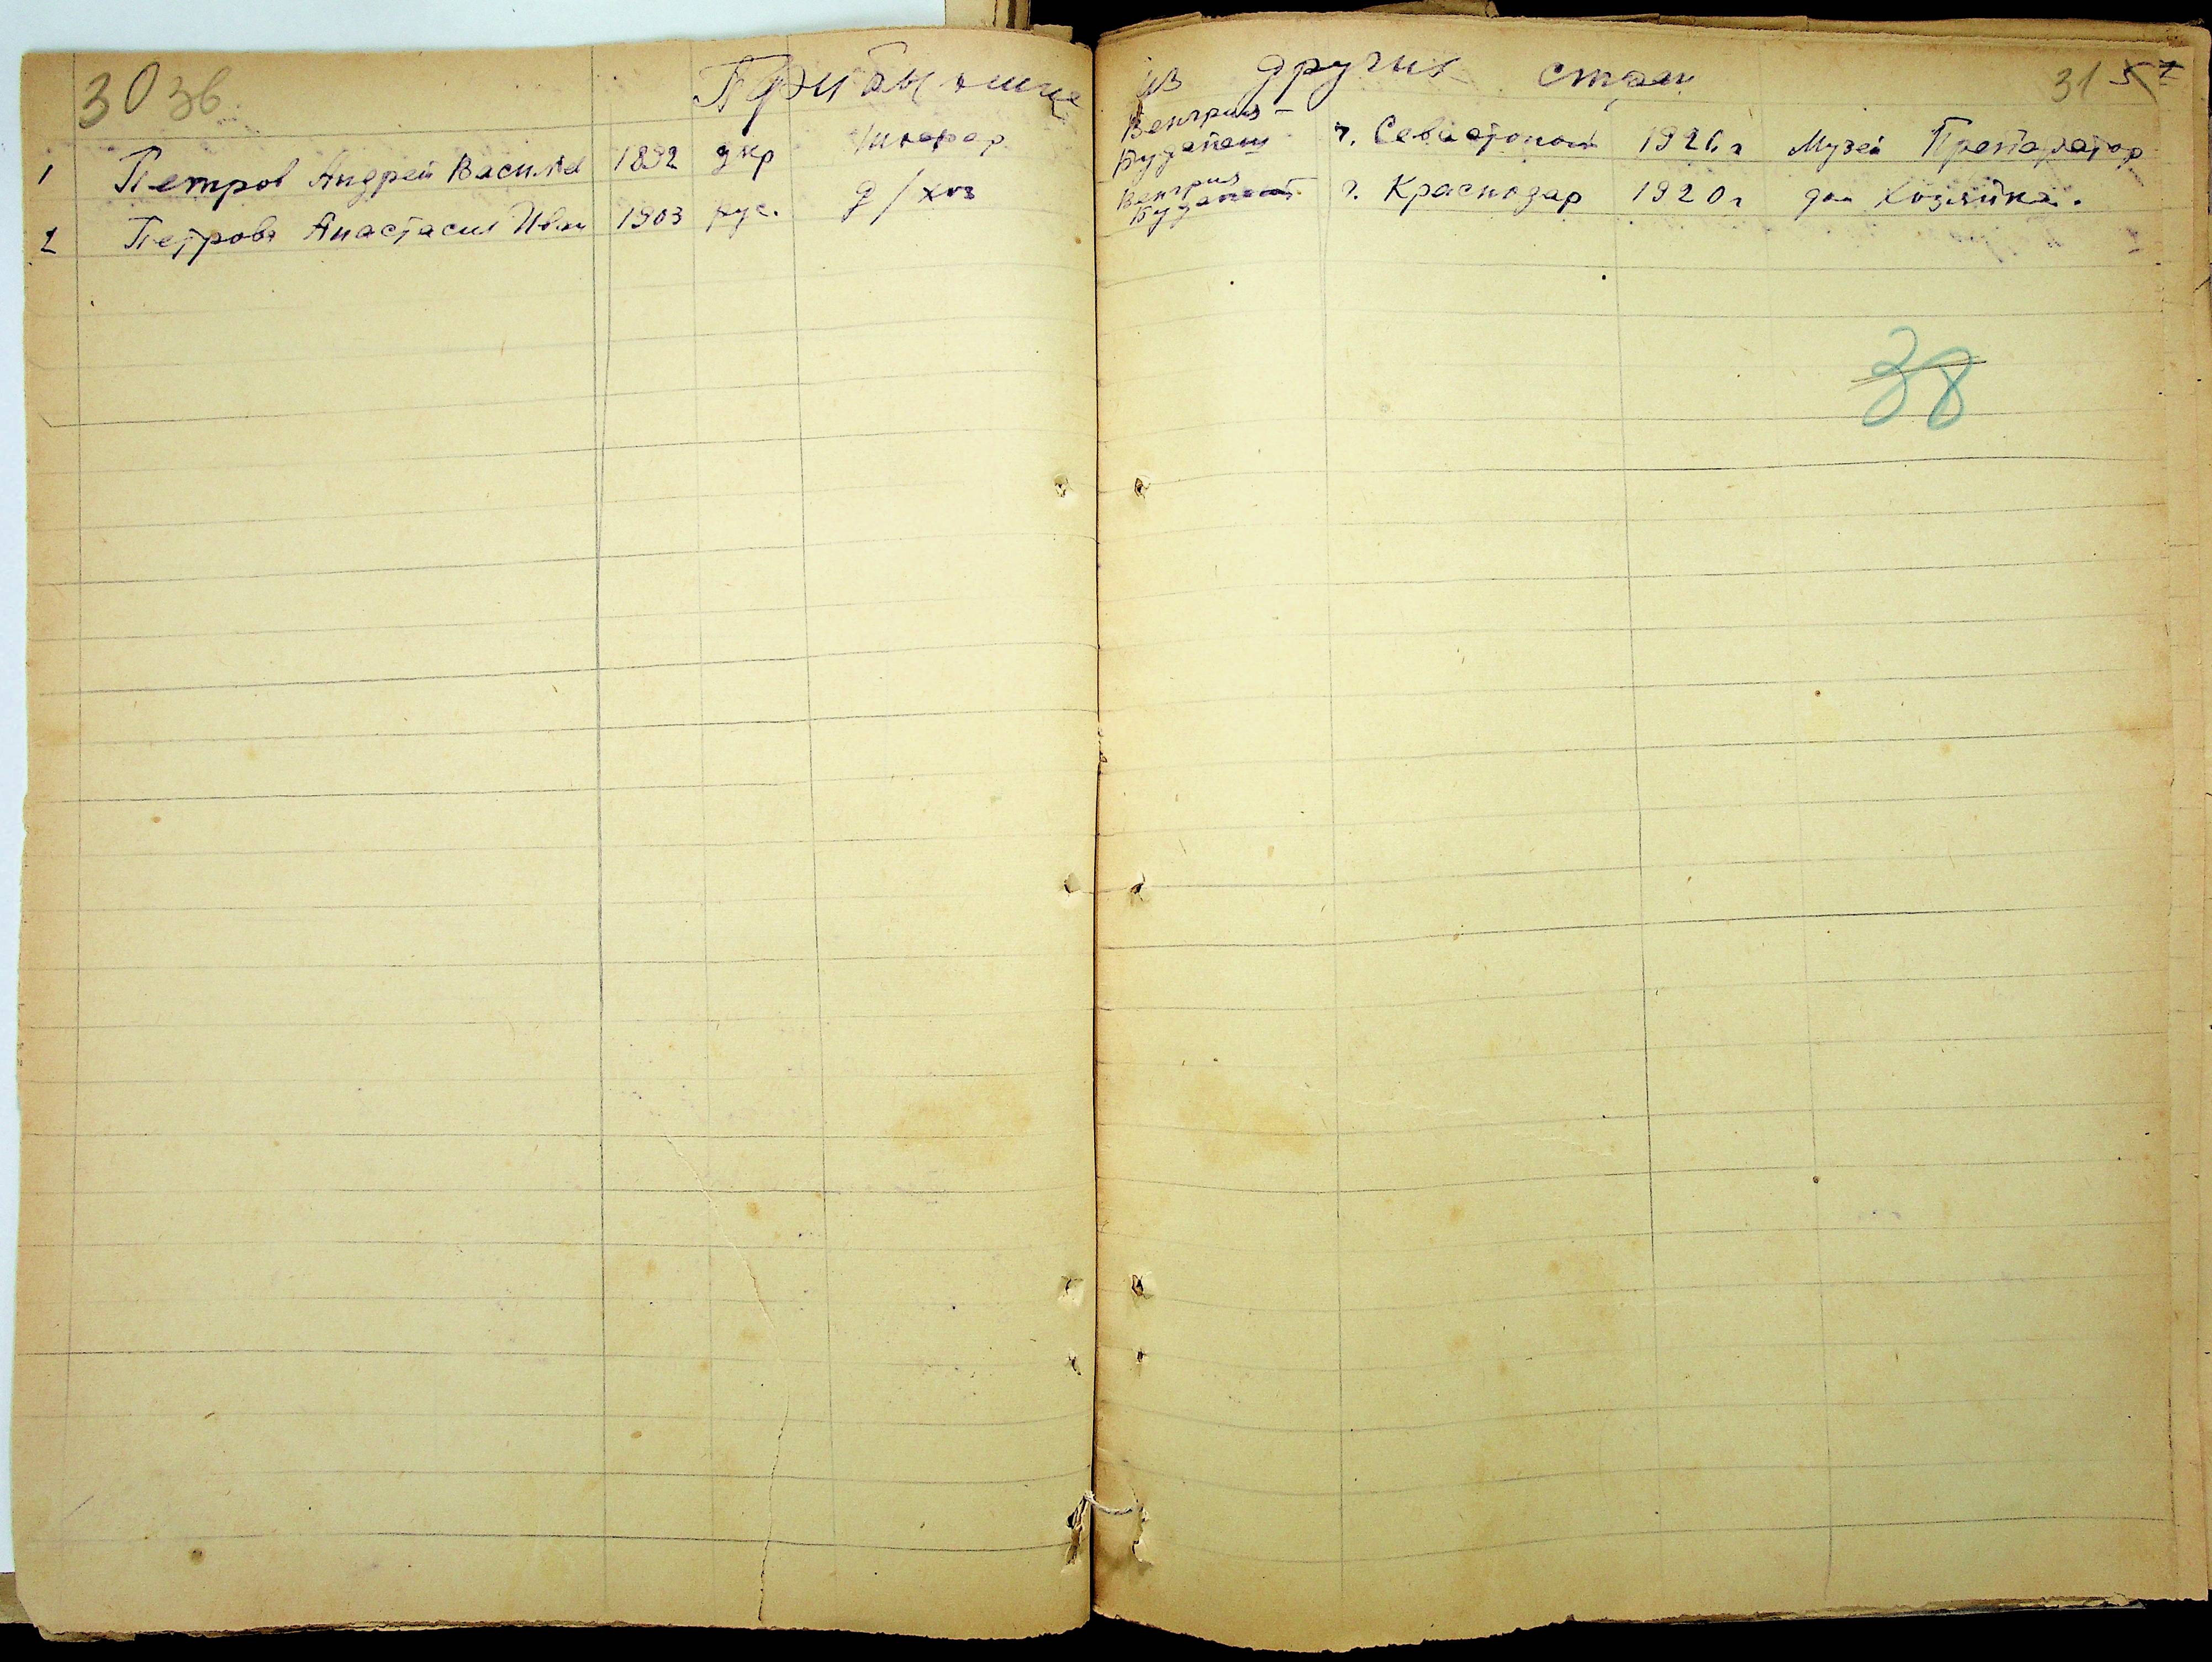 30 36 Прибывшие из других стран 31 57
1 Петров Андрей Василье 1892 укр Шофер Венгрия – Будапеш г. Севастополь 1926 г Музей Препаратор
2 Петрова Анастасия Иван 1903 рус. д/хоз Венгрия Будапешт г. Краснодар 1920 г дом Хозяйка.
38